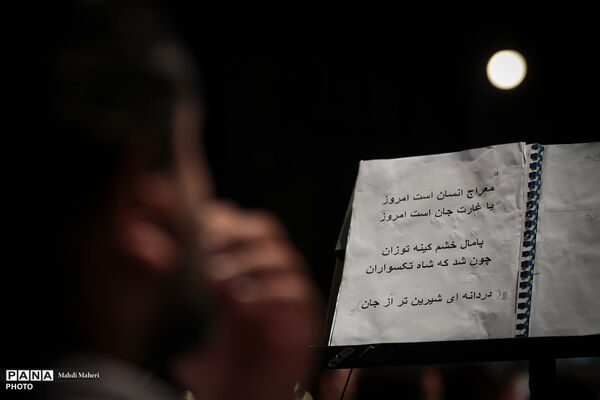 معراج انسان است امروز
یا غارت جان است امروز
پامال خشم کینه توزان
چون شد که شاه تکسواران
دردانه ای شیرین تر از جان
PANA
PHOTO
Mahdi Maheri